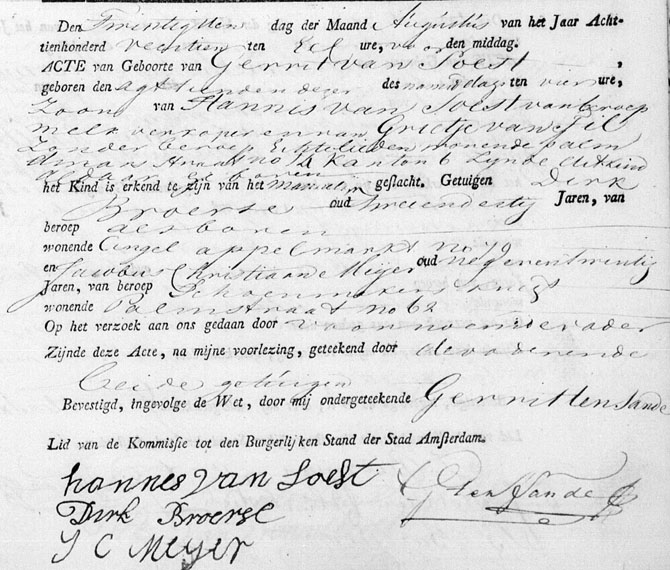 Den Twintigsten dag der Maand Augustus van het Jaar Acht-
tienhonderd veertien ten Elf ure, voor den middag.
ACTE van Geboorte van Gerrit van Soest ,
geboren den agttienden dezer des namiddags ten vier ure,
Zoon van Hannis van Soest van beroep
melkverkoper en van Grietje van Til
Zonder beroep Echtelieden wonende palm
straat no 12 Kanton 6 Zynde dit kind
aldaar geboren
het Kind is erkend te zijn van het mannelijk geslacht. Getuigen Dirk
Broerse oud tweeendertig Jaren, van
beroep als boven
wonende Cingel appelmarkt no 19
en Jacobus Christiaan de Meijer oud negenentwintig
Jaren, van beroep Schoenmakers knegt
wonende Palmstraat no 62
Op het verzoek aan ons gedaan door voornoemde vader
Zijnde deze Acte, na mijne voorlezing, geteekend door de vader ende
beide getuigen
Bevestigd, ingevolge de Wet, door mij ondergeteekende Gerrit ten Sande
Lid van de Kommissie tot den Burgerlijken Stand der Stad Amsterdam.
hannes van Soest G ten Sande
Dirk Broerse
J C Meyer